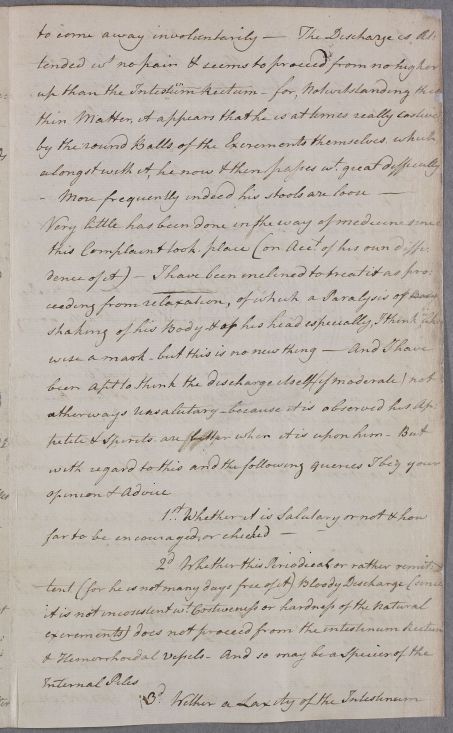 to come away involuntarily — The Discharge is At-
tended wt no pain & seems to proceed from no higher
up than the Intestinum Rectum — for, Notwithstanding the
thin Matter, it appears that he is at times really costive
by the round Balls of the Excrements themselves, which
alongst with it, he now & then passes wt great difficulty
- More frequently indeed his stools are loose —
Very little has been done in the way of medicine since
this Complaint took place (on Acct of his own diffi-
dence of it) — I have been inclined to treat it as pro-
ceeding from relaxation, of which a Paralysis or
shaking of his Body & of his head especially, I think like
wise a mark - but this is no new thing — And I have
been apt to think the discharge itself (if moderate) not
otherways unsalutary - because it is observed his Ap-
petite & Spirits are better when it is upon him - But
with regard to this and the following queries I beg your
opinion & Advice
1st Whether it is Salutary or not & how
far to be encouraged, or checked —
2d Whether this Periodical or rather remit-
tent (for he is not many days free of it) Bloody Discharge (since
it is not inconsistent wt Costiveness or hardness of the Natural
excrements) does not proceed from the intestinum Rectum
& Hemorrhoidal vessels - And so may be a Species of the
Internal Piles
3d Wither a Laxity of the Intestinum